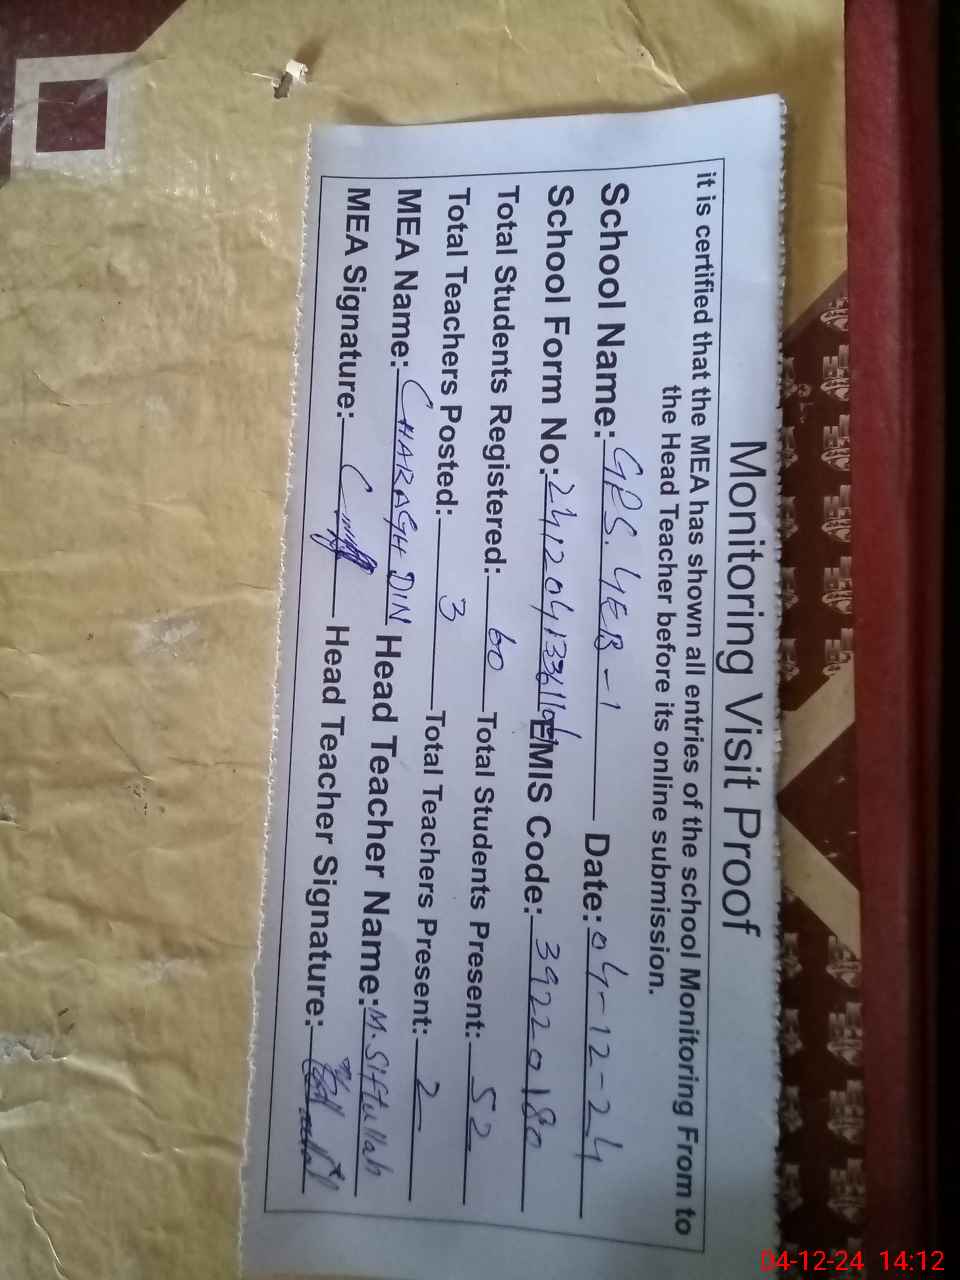 Monitoring Visit Proof
it is certified that the MEA has shown all entries of the school Monitoring From to
the Head Teacher before its online submission.
School Name: GPS. YEB-1 Date: 04-12-24
School Form No: EMIS Code: 39220180
Total Students Registered: 60 Total Students Present: 52
Total Teachers Posted: 3 Total Teachers Present: 2
MEA Name: CHARAGH DIN Head Teacher Name: M. Siftullah
MEA Signature: Head Teacher Signature:
04-12-24 14:12